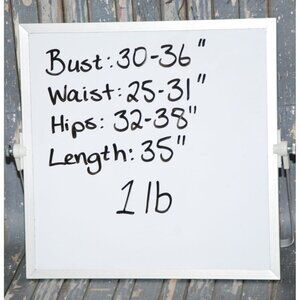 Bust: 30-36"
Waist: 25-31"
Hips: 32-38"
Length: 35"
1 lb